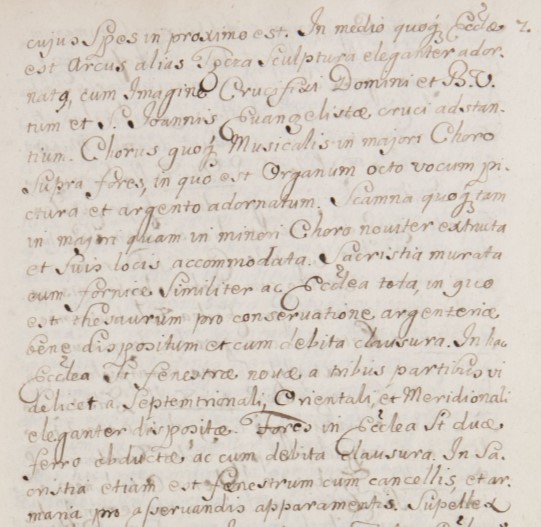 cujus Spes in proximo est. In medio quoq₃ Eccłæ 7.
est Arcus alias Tęcza Sculptura eleganter ador-
natq, cum Imagine Crucifixi Domini et B. V.
tum et S. Ioannis Evangelistæ cruci adstan-
tium. Chorus quoq₃ Musicalis in majori Choro
supra fores, in quo est Organum octo vocum pi-
ctura et argento adornatum. Scamna quoq₃ tam
in majori quam in minori Choro noviter extructa
et suis locis accommodata. Sacristia murata
cum fornice similiter ac Eccłea tota, in quo
est thesaurum pro conservatione argenteriæ
bene dispositum et cum debita clausura. In hac
Eccłea st fenestræ novæ a tribus partibus vi
delicet a Septemtrionali, Orientali, et Meridionali
eleganter dispositæ. Fores in Eccłea st duæ
ferro obductæ, ac cum debita Clausura. In Sa-
cristia etiam est fenestrum cum cancellis, et ar-
maria pro asservandis apparamentis. Supellex